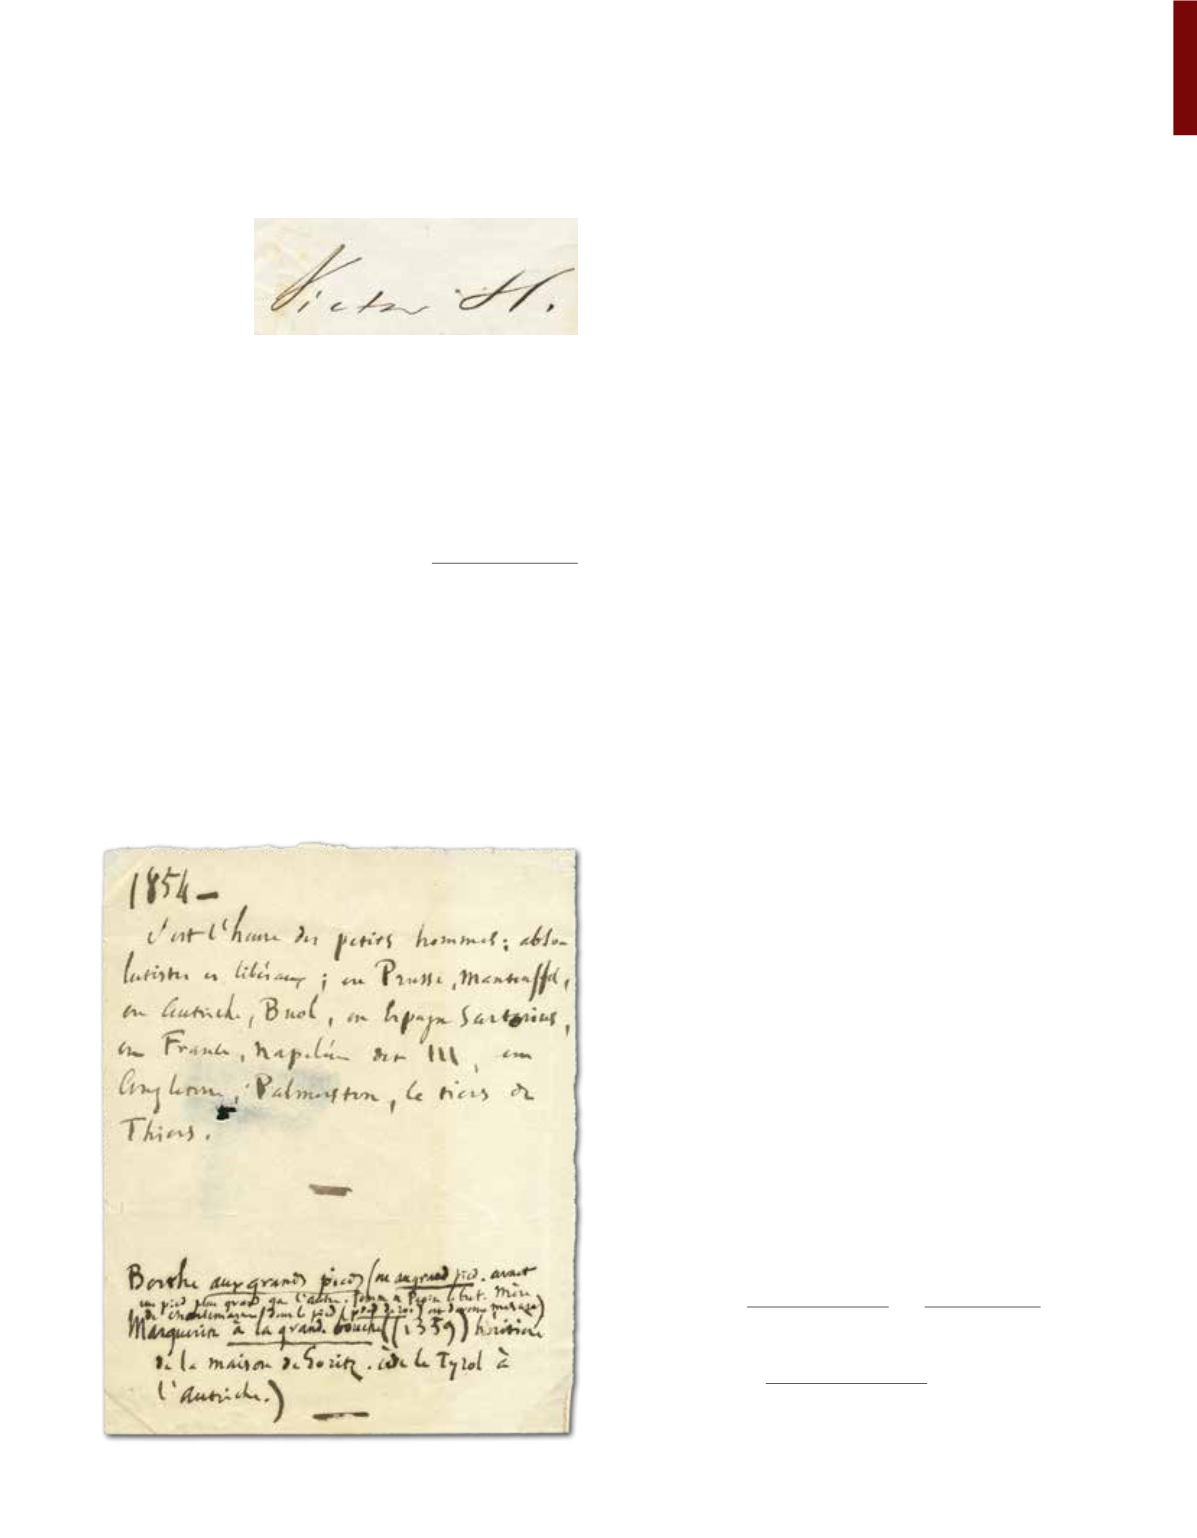 Victor H.
1854 —
C'est l'heure des petits hommes ; abso-
lutistes et libéraux ; en Prusse, Manteuffel,
en Autriche, Buol, en Espagne Sartorius,
en France, Napoléon der III, en
Angleterre, Palmerston, le tiers de
Thiers.
Berthe aux grands pieds (ou au grand pied. avait
un pied plus grand que l'autre. femme de Pepin le bref. Mère
de Charlemagne, dont le pied (pied de roi)
Marguerite à la grande bouche ((1359) héritière
de la maison de Goritz. cède le Tyrol à
l'Autriche.)